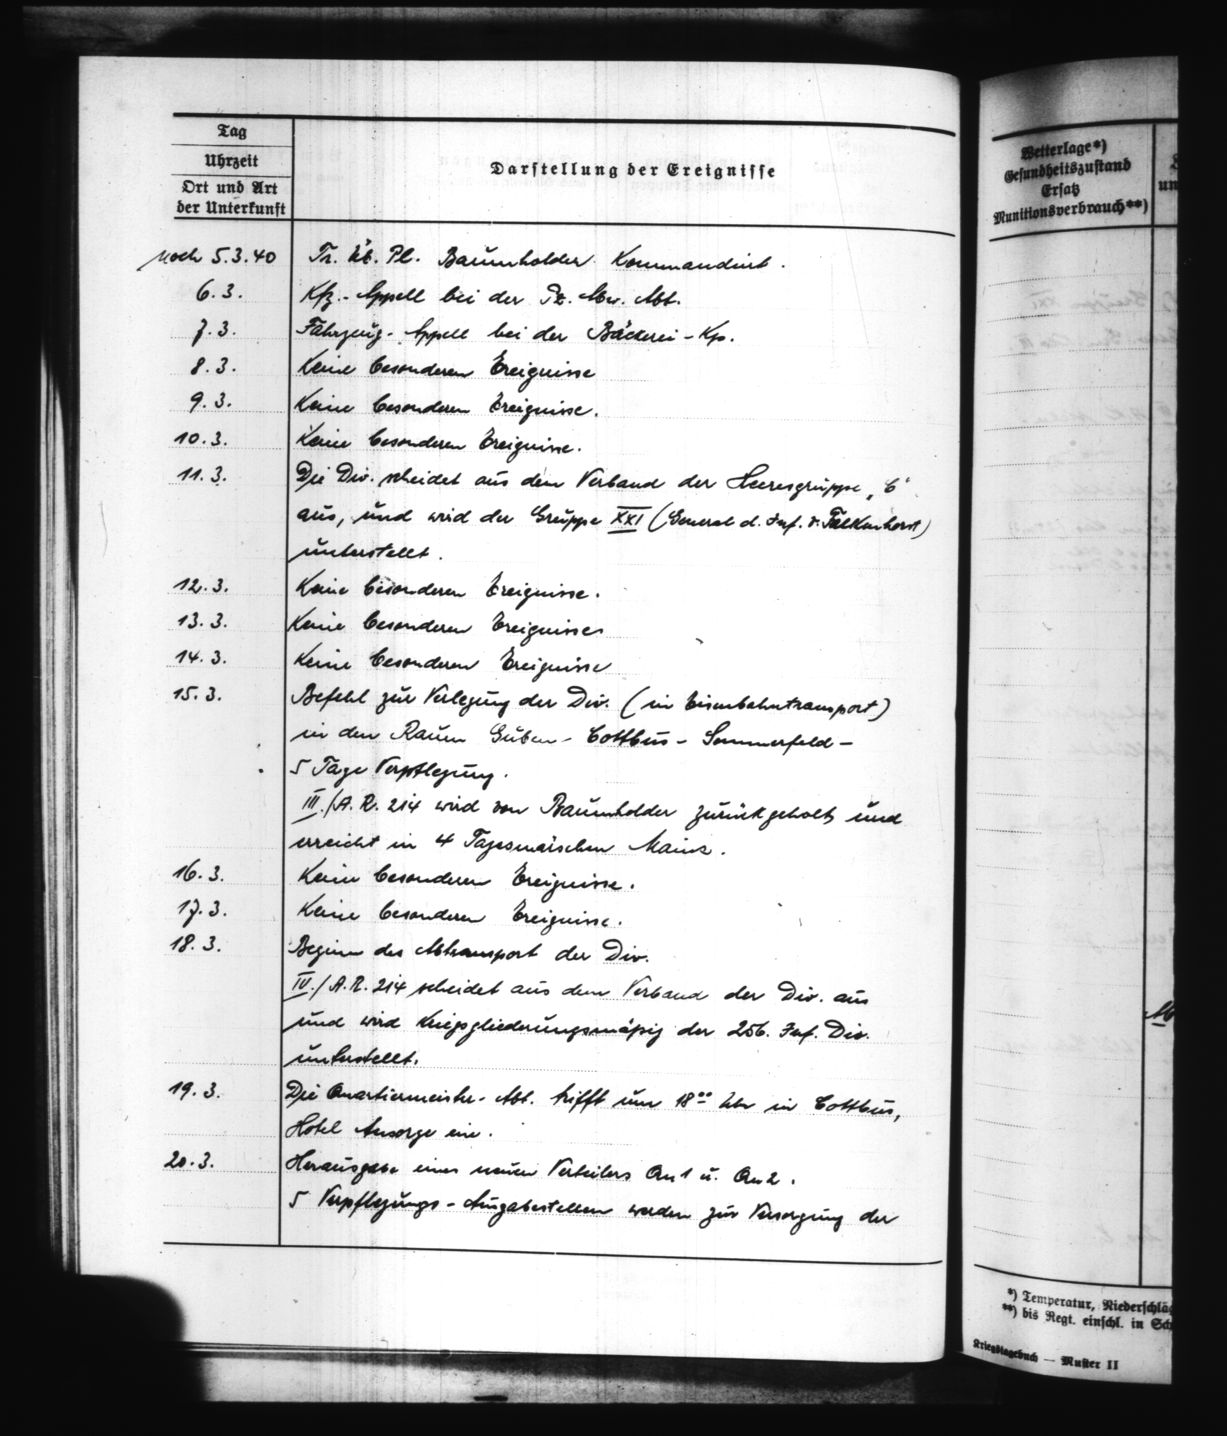 Tag
Uhrzeit
Ort und Art
der Unterkunft
Darstellung der Ereignisse
noch 5.3.40 Tr. Üb. Pl. Baumholder kommandiert.
6.3. Kfz.-Appell bei der Pz. Abw. Abt.
7.3. Fahrzeug-Appell bei der Bäckerei-Kp.
8.3. Keine besonderen Ereignisse
9.3. Keine besonderen Ereignisse.
10.3. Keine besonderen Ereignisse.
11.3. Die Div. scheidet aus dem Verband der Heeresgruppe „C“
aus, und wird der Gruppe XXI (General d. Inf. v. Falkenhorst)
unterstellt.
12.3. Keine besonderen Ereignisse.
13.3. Keine besonderen Ereignisse
14.3. Keine besonderen Ereignisse
15.3. Befehl zur Verlegung der Div. (im Eisenbahntransport)
in den Raum Guben - Cottbus - Sommerfeld -
5 Tage Verpflegung.
III./A.R. 214 wird von Baumholder zurückgeholt und
erreicht in 4 Tagesmärschen Mainz.
16.3. Keine besonderen Ereignisse.
17.3. Keine besonderen Ereignisse.
18.3. Beginn des Abtransport der Div.
IV./A.R. 214 scheidet aus dem Verband der Div. aus
und wird kriegsgliederungsmäßig der 256. Inf. Div.
unterstellt.
19.3. Die Quartiermeister-Abt. trifft um 18⁰⁰ Uhr in Cottbus,
Hotel Ansorge ein.
20.3. Herausgabe eines neuen Verteilers Qu 1 u. Qu 2.
5 Verpflegungs-Ausgabestellen werden zur Versorgung der
Wetterlage*)
Gesundheitszustand
Ersatz
Munitionsverbrauch**)
*) Temperatur, Niederschläg
**) bis Regt. einschl. in Sch
Kriegstagebuch — Muster II